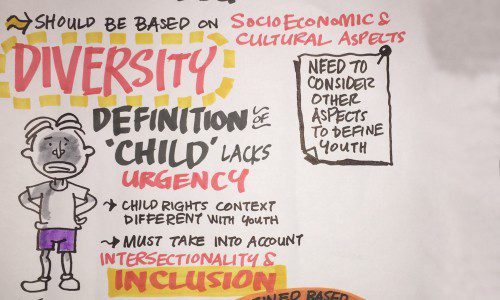 SHOULD BE BASED ON SOCIOECONOMIC &
CULTURAL ASPECTS
DIVERSITY
DEFINITION OF
'CHILD' LACKS
URGENCY
CHILD RIGHTS CONTEXT
DIFFERENT WITH YOUTH
MUST TAKE INTO ACCOUNT
INTERSECTIONALITY &
INCLUSION
NEED TO
CONSIDER
OTHER
ASPECTS
TO DEFINE
YOUTH
BASED